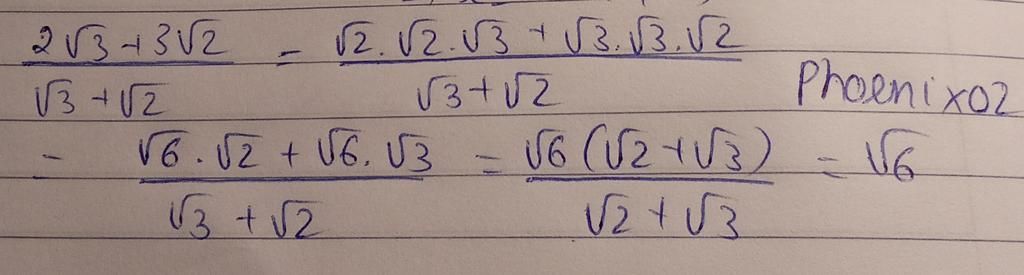 2√3+3√2 / √3+√2 = √2.√2.√3+√3.√3.√2 / √3+√2
Phoenix02
= √6.√2+√6.√3 / √3+√2 = √6(√2+√3) / √2+√3 = √6